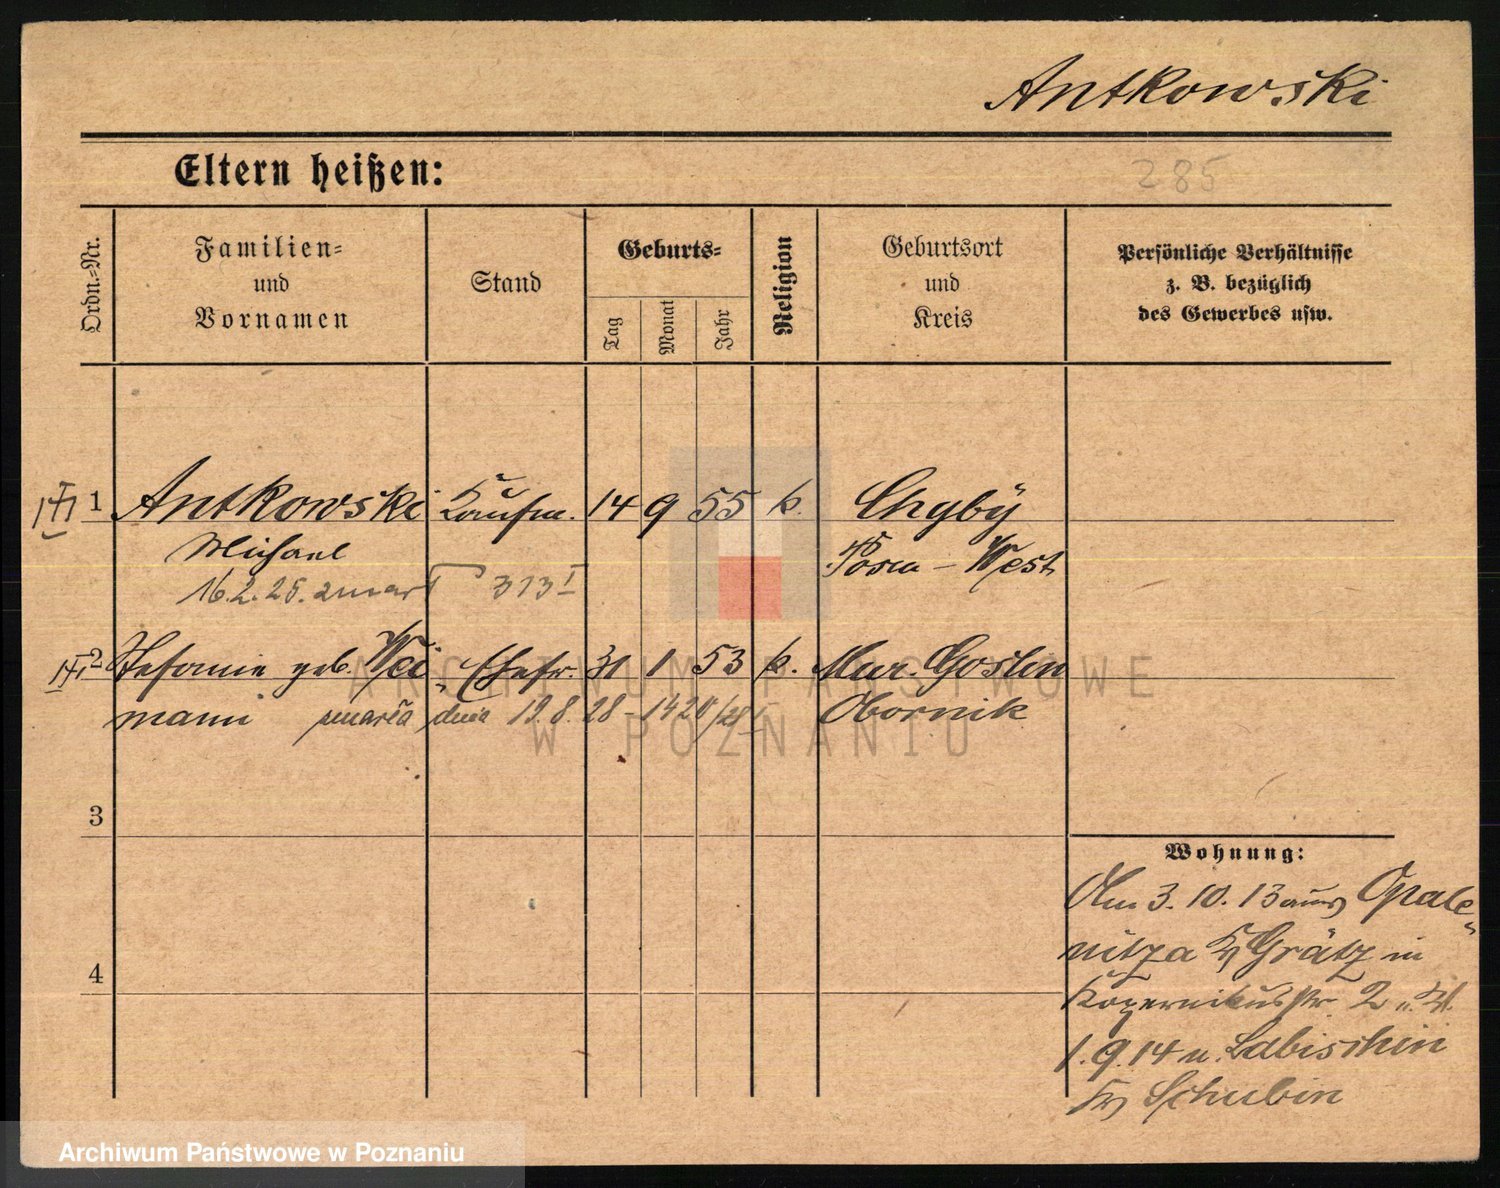 Antkowski
Eltern heißen:
285
Ordn.-Nr.
Familien-
und
Vornamen
Stand
Geburts-
Tag
Monat
Jahr
Religion
Geburtsort
und
Kreis
Persönliche Verhältnisse
z. B. bezüglich
des Gewerbes usw.
1 Antkowski Kaufm. 14 9 55 k. Chyby
Michael Posen - West
16.2.25. zmarł 313 I
2 Stefanie geb. Wei- Ehefr. 31 1 53 k. Mur. Goslin
mann zmarła dnia 19.8.28 - 1420/28 Obornik
3
4
Wohnung:
Am 3.10.13 aus Opale-
nitza Kr Grätz in
Kopernikusstr. 2 u.
1.9.14 n. Labischin
Kr Schubin
ARCHIWUM PAŃSTWOWE
W POZNANIU
Archiwum Państwowe w Poznaniu